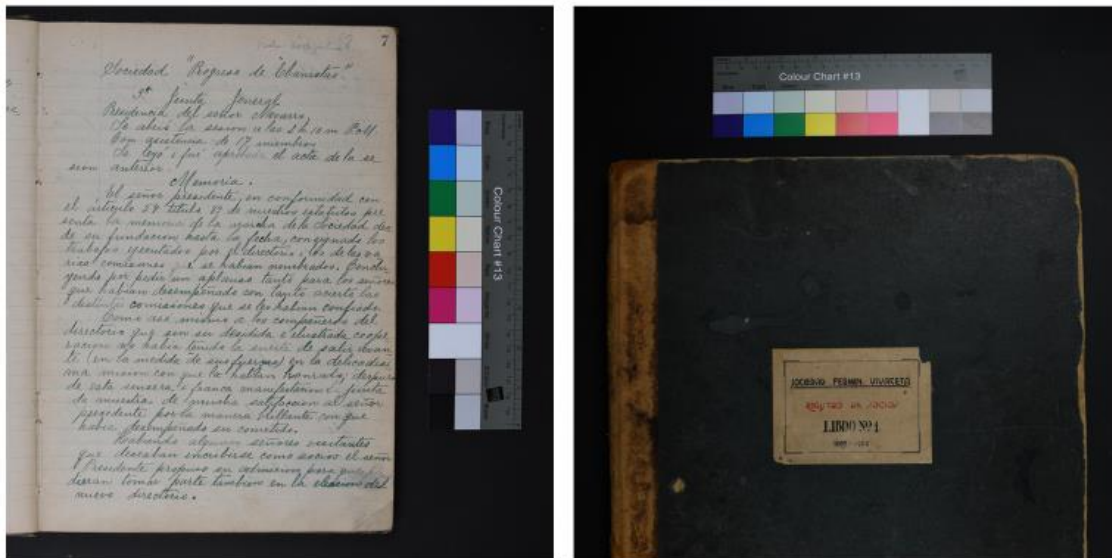 7
Sociedad "Progreso de Ebanistas"
3ª Junta Jeneral
Presidencia del señor Navarro
Se abrió la sesion a las 2 h 10 m P.M.
Con asistencia de 17 miembros
Se leyó i fué aprobada el acta de la se
sion anterior.
Memoria.
El señor presidente, en conformidad con
el articulo 59 titulo 8º de nuestros estatutos pre
senta la memoria de la marcha de la Sociedad des
de su fundacion hasta la fecha, consignado los
trabajos ejecutados por el directorio i los de las va
rias comisiones q. se habian nombrados. Conclu
yendo por pedir un aplauso tanto para los señores
que habian desempeñado con tanto acierto las
distintas comisiones que se les habian confiado
Como asi mismo a los compañeros del
directorio que con su decidida e ilustrada coope
racion habia tenido la suerte de salir avan
te (en la medida de sus fuerzas) en la delicadisi
ma mision con que lo habian honrado, despues
de esta sincera i franca manifestacion la junta
da muestras de mucha satisfaccion al señor
presidente por la manera brillante con que
habia desempeñado su cometido.
Habiendo algunos señores visitantes
que deseaban incribirse como socios el señor
Presidente propuso su admision para que pu
dieran tomar parte tambien en la eleccion del
nuevo directorio.
Colour Chart #13
Colour Chart #13
SOCIEDAD FERMIN VIVACETA
REGISTRO DE SOCIOS
LIBRO Nº 1